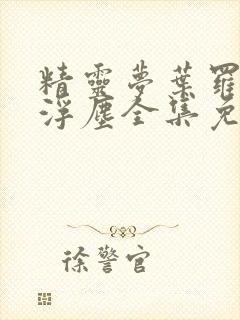 精靈夢葉羅
浮塵全集免
徐警官